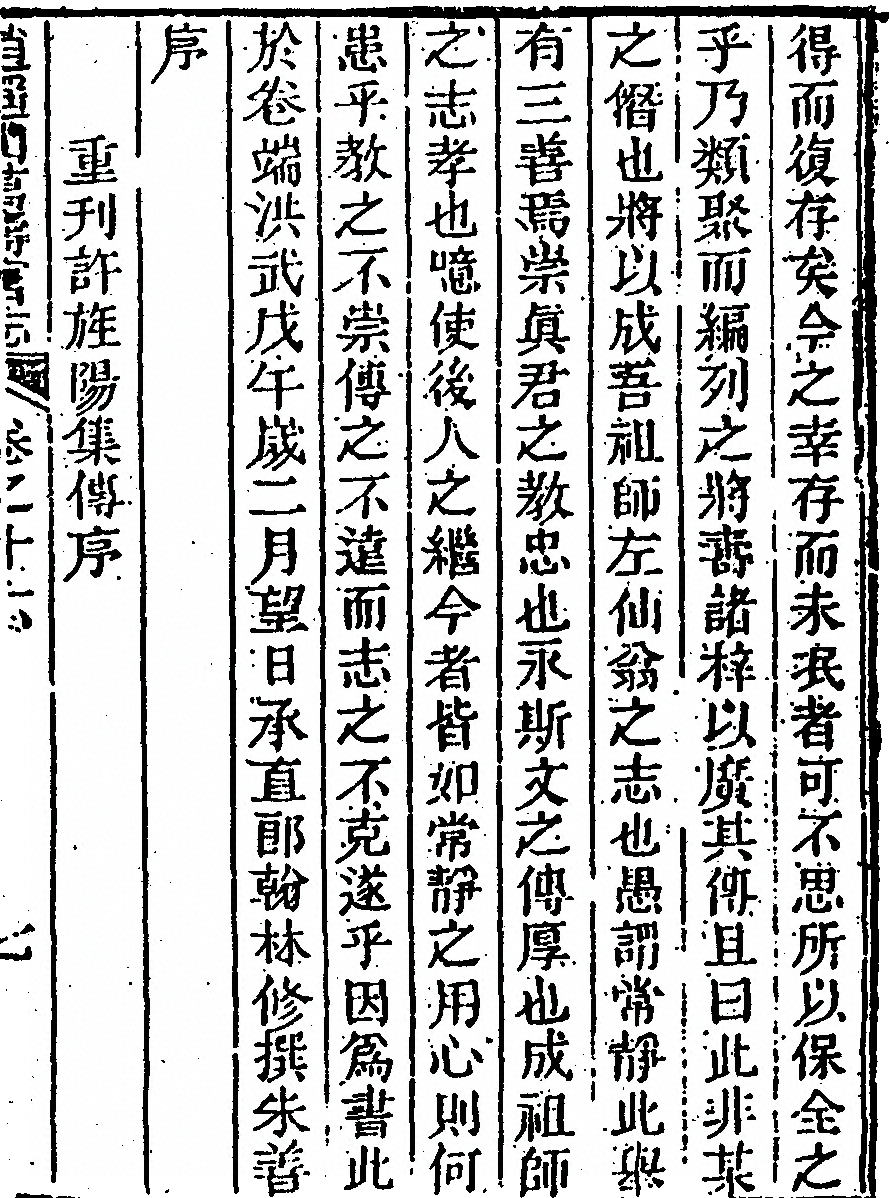 得而復存矣今之幸存而未泯者可不思所以保全之
乎乃類聚而編列之將壽諸梓以廣其傳且曰此非某
之僭也將以成吾祖師左仙翁之志也愚謂常靜此舉
有三善焉崇眞君之教忠也永斯文之傳厚也成祖師
之志孝也噫使後人之繼今者皆如常靜之用心則何
患乎教之不崇傳之不遠而志之不克遂乎因爲書此
於卷端洪武戊午歲二月望日承直郎翰林修撰朱善
序
重刊許旌陽集傳序
逍遙山萬壽宮志
卷之十
七